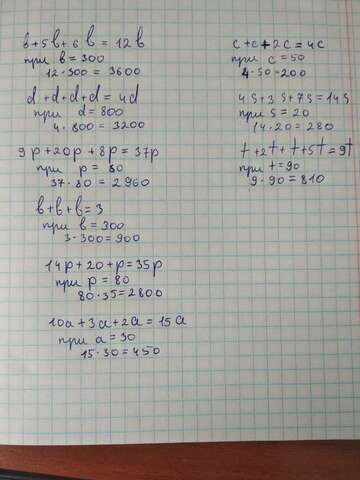 в+5в+6в=12в
при в=300
12·300=3600
d+d+d+d=4d
при d=800
4·800=3200
9p+20p+8p=37p
при p=80
37·80=2960
в+в+в=3
при в=300
3·300=900
14p+20+p=35p
при p=80
80·35=2800
10a+3a+2a=15a
при a=30
15·30=450
c+c+2c=4c
при c=50
4·50=200
4s+3s+7s=14s
при s=20
14·20=280
t+2t+t+5t=9t
при t=90
9·90=810